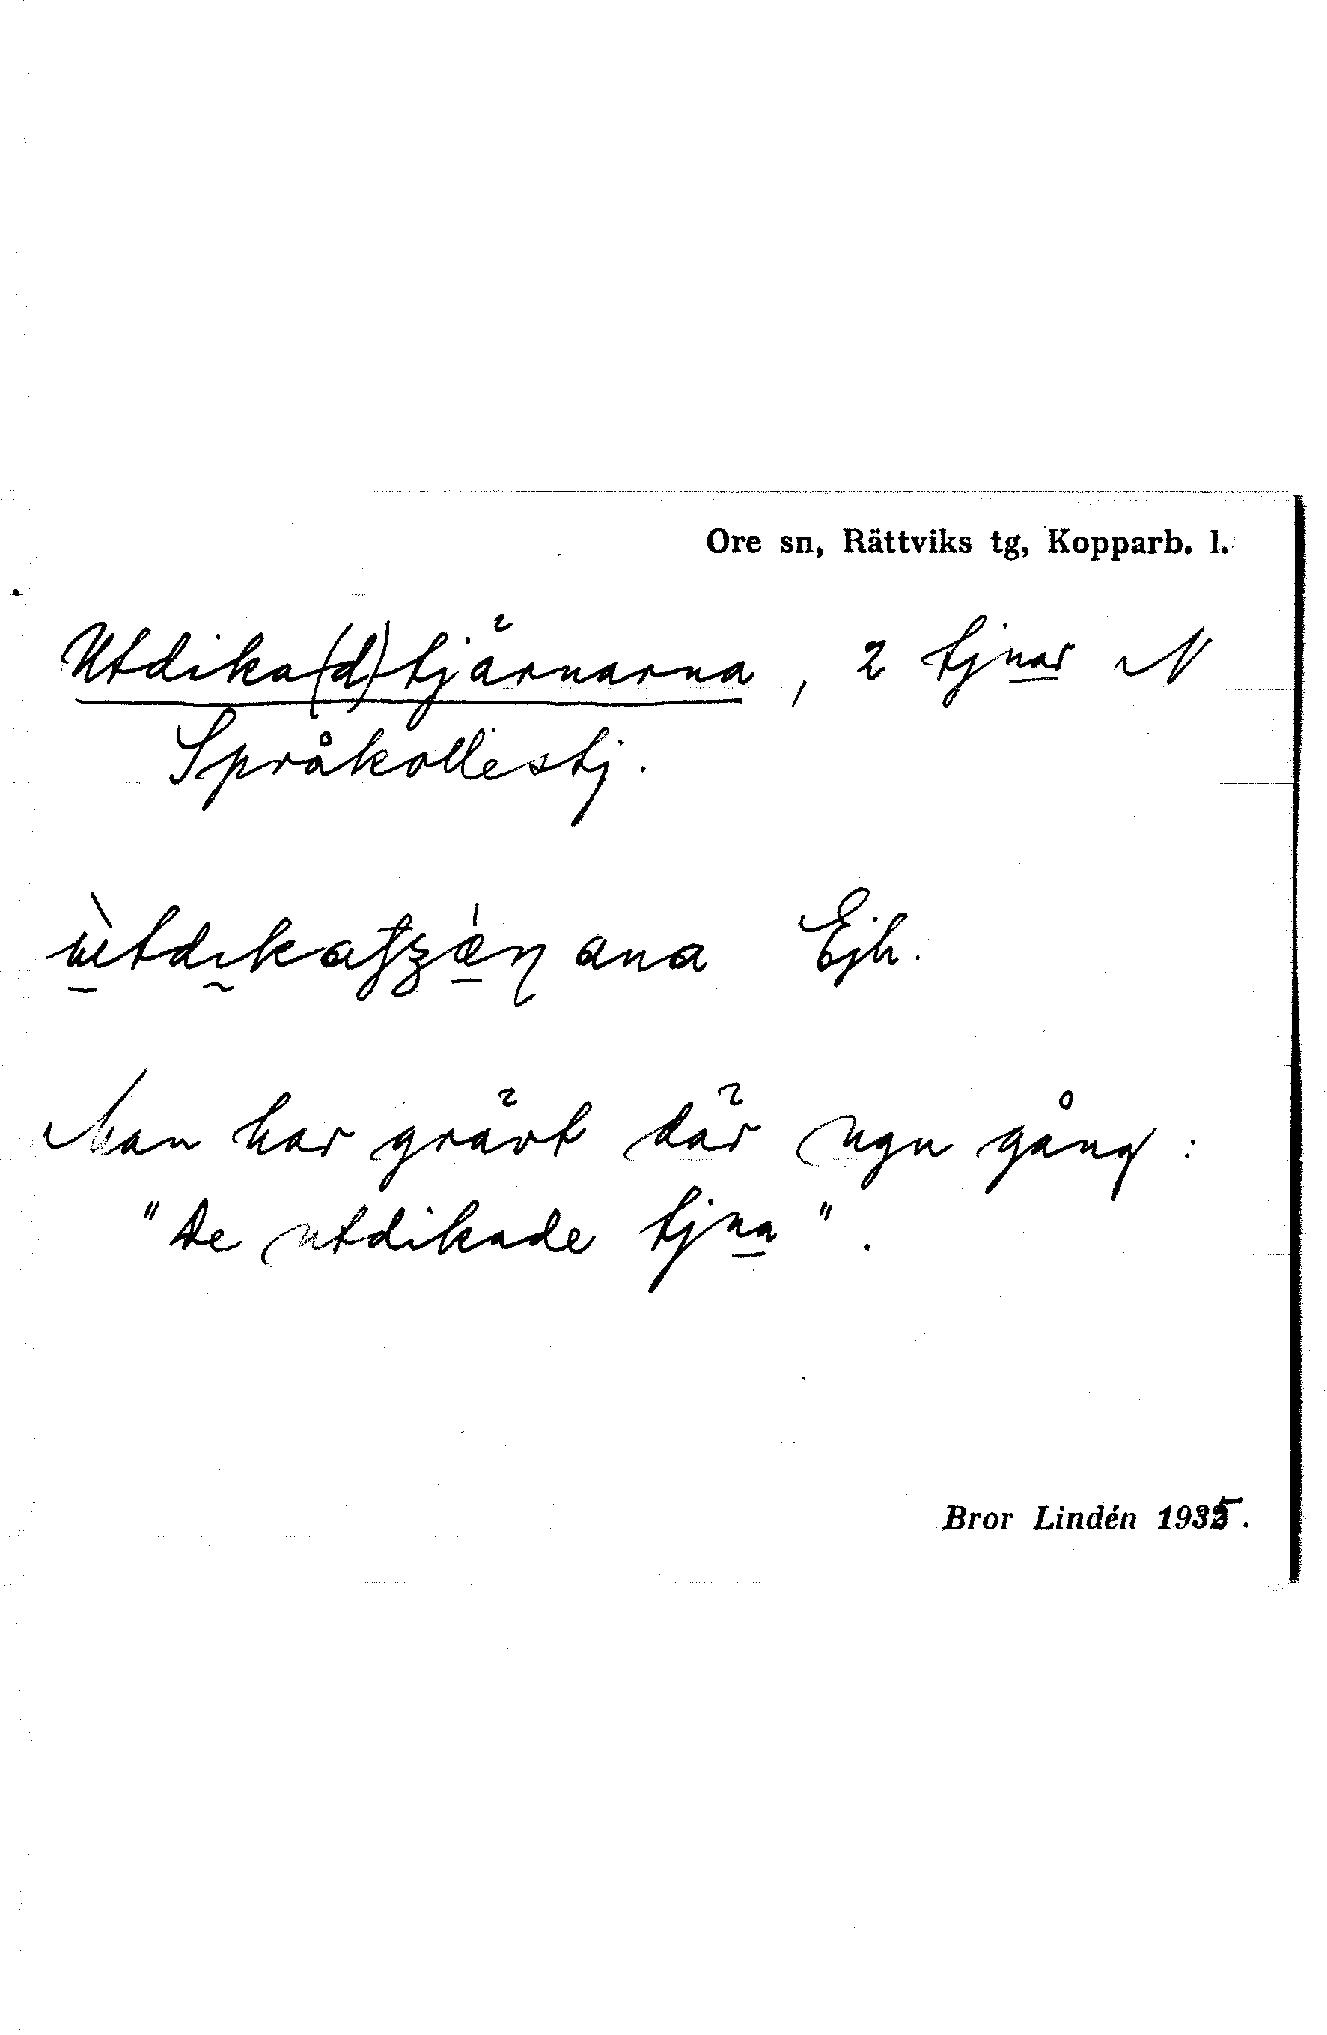 Ore sn, Rättviks tg, Kopparb. l.
Utdika(d)tjärnarna, 2 tjnar N
Språkollestj.
Ejh.
Man har grävt där ngn gång:
"De utdikade tjna".
Bror Lindén 1935.